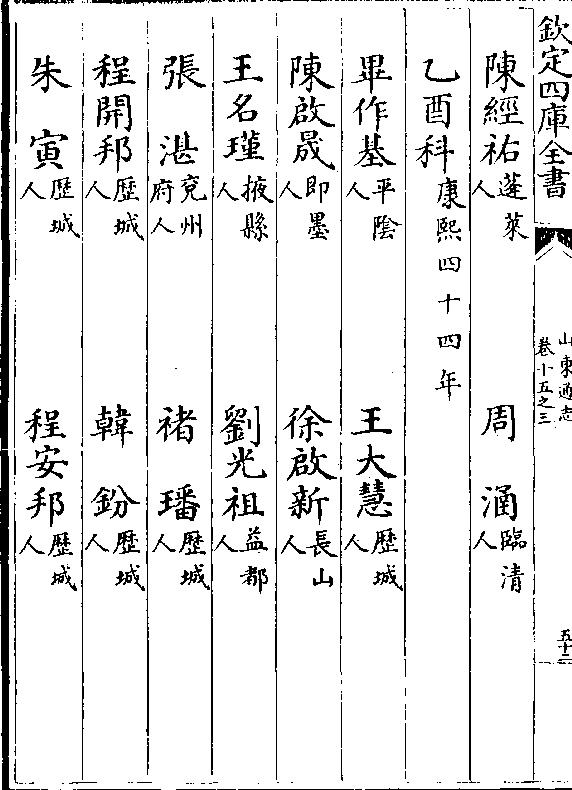 欽定四庫全書
山東通志
卷十五之三
五十二
陳經祐蓬萊人
周涵臨清人
乙酉科康熙四十四年
畢作基平陰人
王大慧歷城人
陳啟晟即墨人
徐啟新長山人
王名瑾掖縣人
劉光祖益都人
張湛兖州府人
褚璠歷城人
程開邦歷城人
韓鈖歷城人
朱寅歷城人
程安邦歷城人